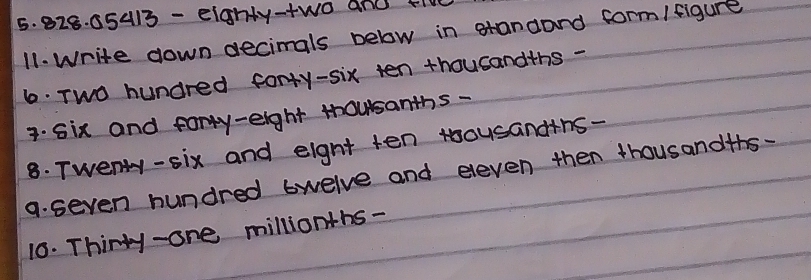 5. 828.05413 - eighty-two and
11. Write down decimals below in standard form/figure
6. Two hundred forty-six ten thousandths -
7. Six and forty-eight thoutsanths -
8. Twenty-six and eight ten thousandths -
9. Seven hundred twelve and eleven then thousandths -
10. Thirty-one millionths -